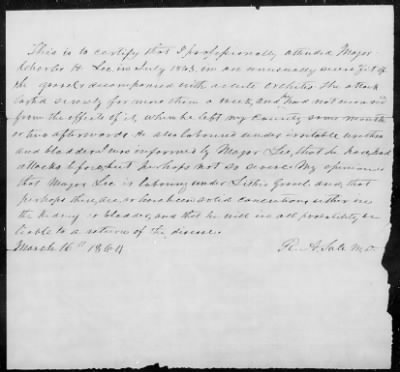 This is to certify that I professionally attended Major
Charles H. Lee in July 1863 in an unusually severe fit of
the gravel, accompanied with acute the attack
lasted severely for more than a week, and had not recovered
from the effects of it, when he left my County some month
or two afterwards. He also labored under irritable urethra
and bladder. I was informed by Major Lee, that he have had
attacks before, but perhaps not so severe. My opinion is
that Major Lee is laboring under Lithic Gravel and, that
perhaps there, are, or have been solid concretions either in
the kidney or bladder, and that he will in all probability be
liable to a return of the disease.
March 16th 1864 R. A. M.D.